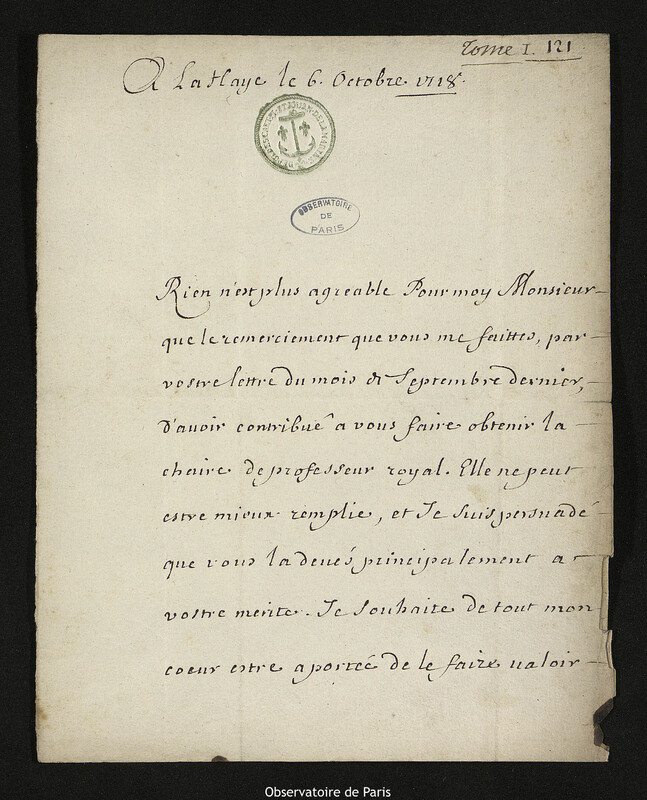 Tome I. 121
A La Haye le 6. Octobre 1718.
OBSERVATOIRE
DE
PARIS
Rien n'est plus agreable Pour moy Monsieur
que le remerciement que vous me faittes, par
vostre lettre du mois de Septembre dernier,
D'avoir contribué a vous faire obtenir la
chaire de professeur royal. Elle ne peut
estre mieux remplie, et Je suis persuadé
que vous la deués principalement a
vostre merite. Je souhaite de tout mon
coeur estre a portée de le faire ualoir
Observatoire de Paris